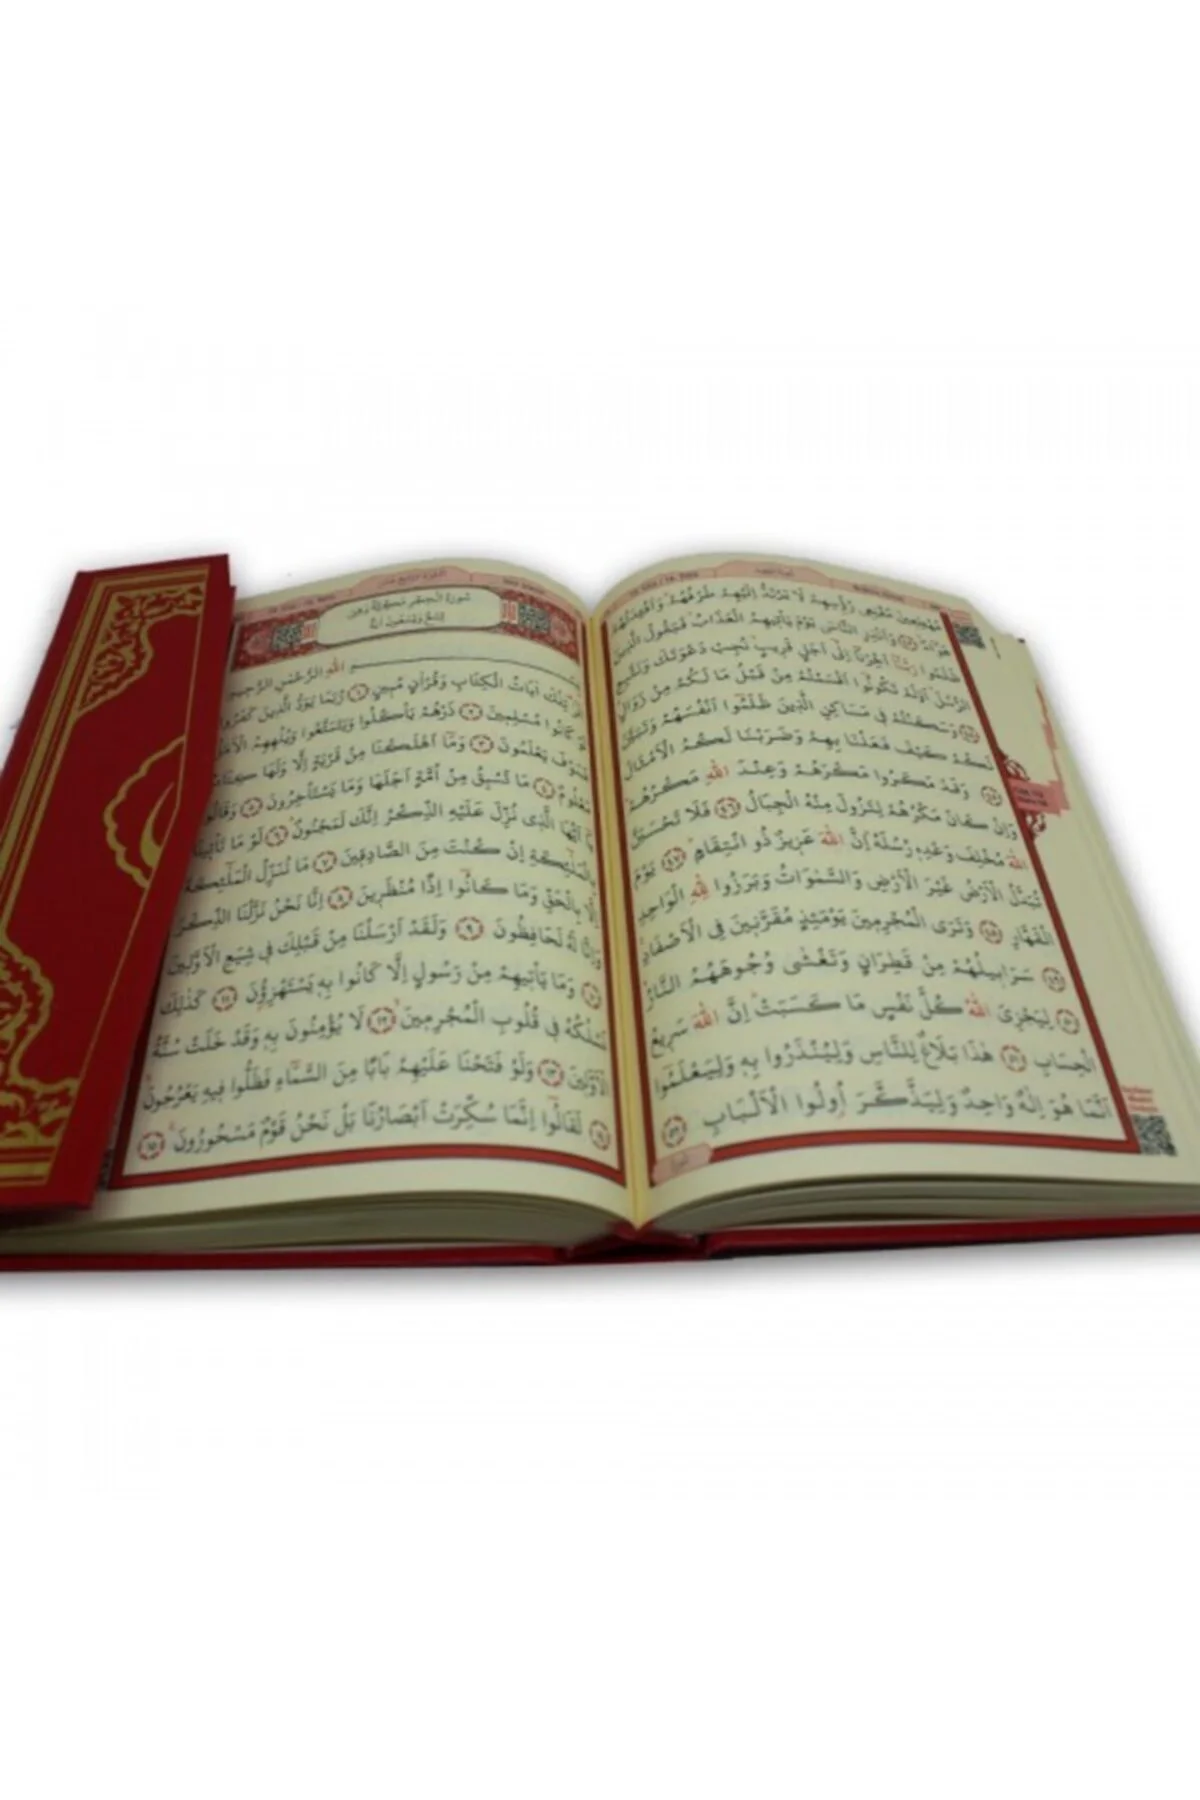 مُهْطِعِينَ مُقْنِعِى رُؤُسِهِمْ لَا يَرْتَدُّ اِلَيْهِمْ طَرْفُهُمْ وَاَفْـِٔدَتُهُمْ
هَوَٓاءٌ ﴿٤٣﴾ وَاَنْذِرِ النَّاسَ يَوْمَ يَأْتِيهِمُ الْعَذَابُ فَيَقُولُ الَّذِينَ
ظَلَمُوا رَبَّنَٓا اَخِّرْنَٓا اِلٰٓى اَجَلٍ قَرِيبٍ نُجِبْ دَعْوَتَكَ وَنَتَّبِعِ
الرُّسُلَ اَوَلَمْ تَكُونُٓوا اَقْسَمْتُمْ مِنْ قَبْلُ مَا لَكُمْ مِنْ زَوَالٍ
﴿٤٤﴾ وَسَكَنْتُمْ فِى مَسَاكِنِ الَّذِينَ ظَلَمُٓوا اَنْفُسَهُمْ وَتَبَيَّنَ
لَكُمْ كَيْفَ فَعَلْنَا بِهِمْ وَضَرَبْنَا لَكُمُ الْاَمْثَالَ
﴿٤٥﴾ وَقَدْ مَكَرُوا مَكْرَهُمْ وَعِنْدَ اللّٰهِ مَكْرُهُمْ
وَاِنْ كَانَ مَكْرُهُمْ لِتَزُولَ مِنْهُ الْجِبَالُ ﴿٤٦﴾ فَلَا تَحْسَبَنَّ
اللّٰهَ مُخْلِفَ وَعْدِهِ رُسُلَهُ اِنَّ اللّٰهَ عَزِيزٌ ذُو انْتِقَامٍ ﴿٤٧﴾ يَوْمَ
تُبَدَّلُ الْاَرْضُ غَيْرَ الْاَرْضِ وَالسَّمٰوَاتُ وَبَرَزُوا لِلّٰهِ الْوَاحِدِ
الْقَهَّارِ ﴿٤٨﴾ وَتَرَى الْمُجْرِمِينَ يَوْمَئِذٍ مُقَرَّنِينَ فِى الْاَصْفَادِ
﴿٤٩﴾ سَرَابِيلُهُمْ مِنْ قَطِرَانٍ وَتَغْشٰى وُجُوهَهُمُ النَّارُ
﴿٥٠﴾ لِيَجْزِىَ اللّٰهُ كُلَّ نَفْسٍ مَا كَسَبَتْ اِنَّ اللّٰهَ سَرِيعُ
الْحِسَابِ ﴿٥١﴾ هٰذَا بَلَاغٌ لِلنَّاسِ وَلِيُنْذَرُوا بِهِ وَلِيَعْلَمُٓوا
اَنَّمَا هُوَ اِلٰهٌ وَاحِدٌ وَلِيَذَّكَّرَ اُولُوا الْاَلْبَابِ ﴿٥٢﴾
سُورَةُ الْحِجْرِ مَكِّيَّةٌ وَهِىَ
تِسْعٌ وَتِسْعُونَ اٰيَةً
بِسْمِ اللّٰهِ الرَّحْمٰنِ الرَّحِيمِ
الٓرٰ تِلْكَ اٰيَاتُ الْكِتَابِ وَقُرْاٰنٍ مُبِينٍ ﴿١﴾ رُبَمَا يَوَدُّ الَّذِينَ كَفَرُوا
لَوْ كَانُوا مُسْلِمِينَ ﴿٢﴾ ذَرْهُمْ يَأْكُلُوا وَيَتَمَتَّعُوا وَيُلْهِهِمُ الْاَمَلُ
فَسَوْفَ يَعْلَمُونَ ﴿٣﴾ وَمَٓا اَهْلَكْنَا مِنْ قَرْيَةٍ اِلَّا وَلَهَا كِتَابٌ
مَعْلُومٌ ﴿٤﴾ مَا تَسْبِقُ مِنْ اُمَّةٍ اَجَلَهَا وَمَا يَسْتَأْخِرُونَ ﴿٥﴾ وَقَالُوا
يَٓا اَيُّهَا الَّذِى نُزِّلَ عَلَيْهِ الذِّكْرُ اِنَّكَ لَمَجْنُونٌ ﴿٦﴾ لَوْ مَا تَأْتِينَا
بِالْمَلٰٓئِكَةِ اِنْ كُنْتَ مِنَ الصَّادِقِينَ ﴿٧﴾ مَا نُنَزِّلُ الْمَلٰٓئِكَةَ
اِلَّا بِالْحَقِّ وَمَا كَانُٓوا اِذًا مُنْظَرِينَ ﴿٨﴾ اِنَّا نَحْنُ نَزَّلْنَا الذِّكْرَ
وَاِنَّا لَهُ لَحَافِظُونَ ﴿٩﴾ وَلَقَدْ اَرْسَلْنَا مِنْ قَبْلِكَ فِى شِيَعِ الْاَوَّلِينَ
﴿١٠﴾ وَمَا يَأْتِيهِمْ مِنْ رَسُولٍ اِلَّا كَانُوا بِهِ يَسْتَهْزِؤُنَ ﴿١١﴾ كَذٰلِكَ
نَسْلُكُهُ فِى قُلُوبِ الْمُجْرِمِينَ ﴿١٢﴾ لَا يُؤْمِنُونَ بِهِ وَقَدْ خَلَتْ سُنَّةُ
الْاَوَّلِينَ ﴿١٣﴾ وَلَوْ فَتَحْنَا عَلَيْهِمْ بَابًا مِنَ السَّمَٓاءِ فَظَلُّوا فِيهِ يَعْرُجُونَ
﴿١٤﴾ لَقَالُٓوا اِنَّمَا سُكِّرَتْ اَبْصَارُنَا بَلْ نَحْنُ قَوْمٌ مَسْحُورُونَ ﴿١٥﴾